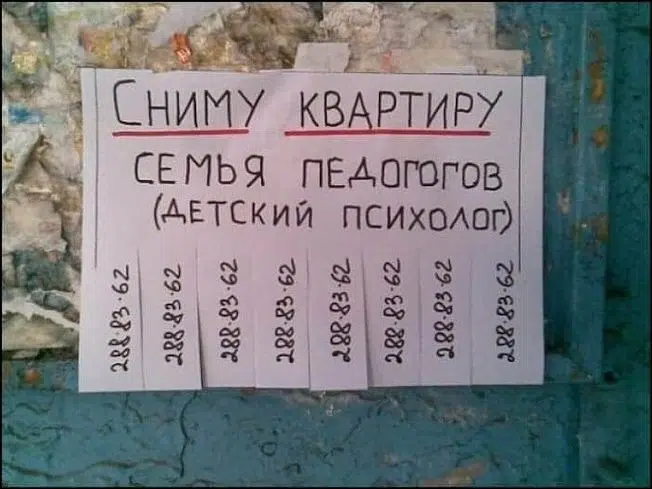 Сниму квартиру
семья педогогов
(детский психолог)
288.83.62
288.83.62
288.83.62
288.83.62
288.83.62
288.83.62
288.83.62
288.83.62